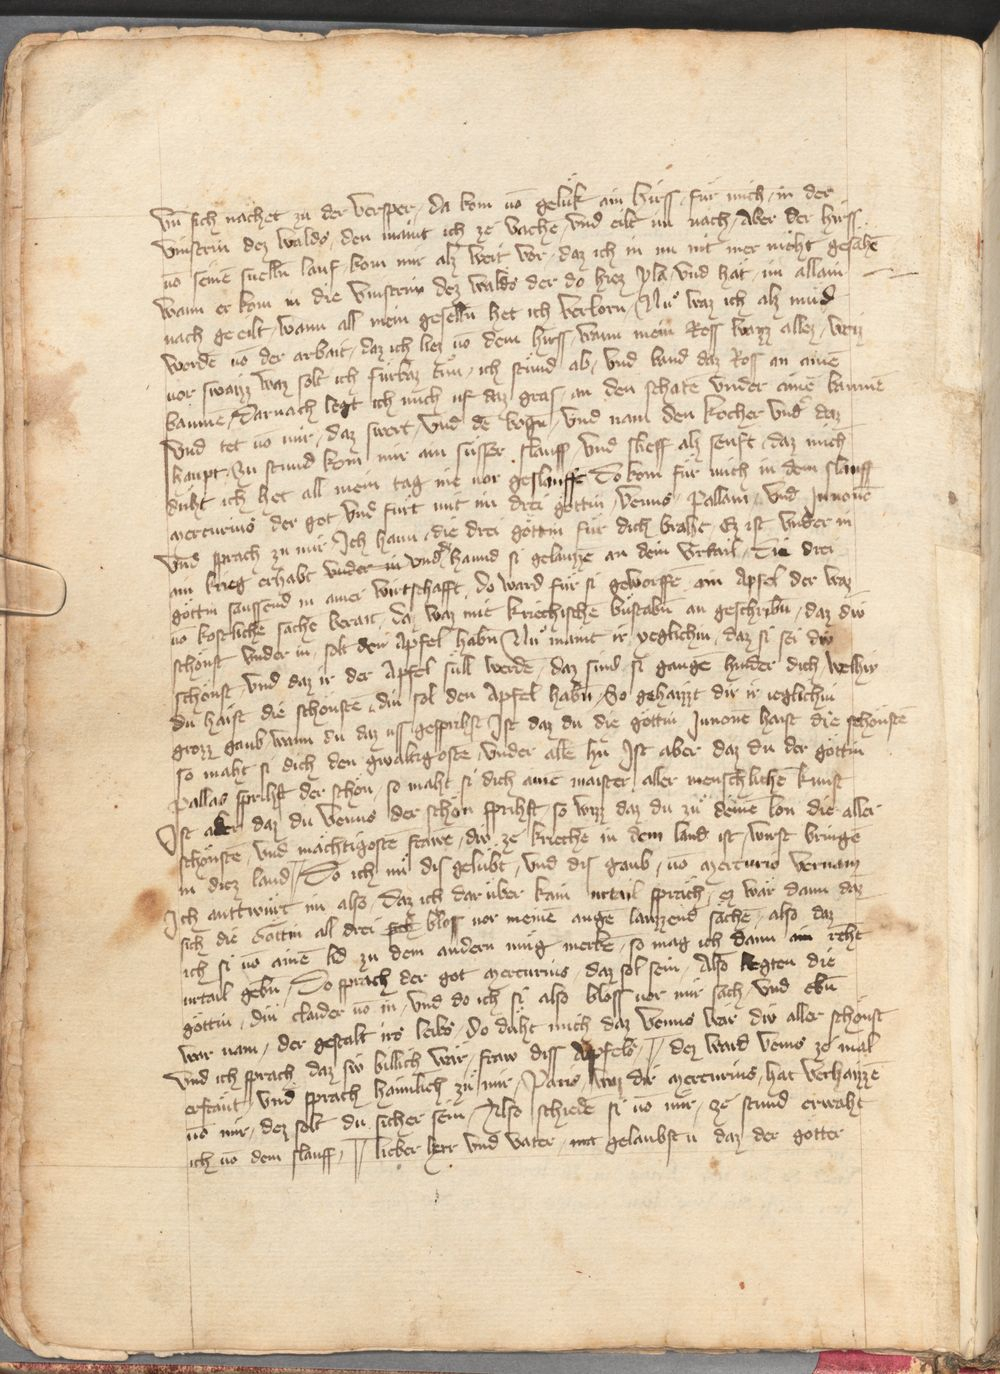 vn̄ sich nachet zu der versper / da kom vō geluͤk ain hirss / fuͤr mich / in der
vinstrin dez walds / den maint ich ze vache / vnd eilt im nach / Aber der hirss
vō seinē snelln̄ lauf / kom mir alz weit vor / daz ich in nu nit mer nicht gesahe
wann er kom in die vinstrin dez walds der do hiez yla / vnd hat im allain
nach geeilt / wann all mein geselln̄ het ich verlorn / Nuͦ waz ich alz muͤd
wordē vō der arbait / daz ich liez vō dem hirss / wann mein Ross wazz allez / weiz
vor swaizz waz solt ich fuͤrbaz tuͦn / ich stuͦnd ab / vnd band daz Ross an ainē
baume / Darnach legt ich mich uf daz gras / an den schatē vnder ainē baumē
vnd tet vō mir / daz swert / vnd dē bogn̄ / vnd nam den kocher vnder daz
haupt / Zu stund kom mir ain suͤsser slauff / vnd slieff alz senft / daz mich
duht ich het all mein tag nie vor geslauffē Do kom fuͤr mich in dem slauff
mercurius der got vnd fuͤrt mit im drei goͤttin / venus / Pallam / vnd Junonē
vnd sprach zu mir / Ich hann / die drei goͤttin fuͤr dich braht / Ez ist vnder in
ain krieg erhabt vnder in vnd hannd si gelauzze an dein vrtail / Die drei
goͤttin saussend in ainer wirtschafft / do ward fuͤr si geworffē ain Apfel der waz
vō kostlichē sache berait / da waz mit kriechischē buͦstabn̄ an geschribn̄ / daz diw
schoͤnst vnder in / solt den Apfel habn̄ Nuͦ maint ir yeglichiu / daz si sei diw
schoͤnst / vnd daz ir der Apfel suͤll werdē / daz sind si gangē hinder dich / welhiv
du haist die schoͤnstē / diu sol den Apfel habn̄ / So gehaizzt dir ir ieglichiu
grozz gaub / wann du daz uss gesprichst Ist daz du die goͤttin Junonē haist die schoͤnstē
so maht si dich den gwaltigostē / vnder alle hn̄ Ist aber daz du der goͤttin
Pallas sprihst der schoͤn / so maht si dich ainē maister aller menschlichē kunst
Ist aber daz du venus der schoͤn sprihst / so wizz daz du zuͦ deinē lon die aller
schoͤnstē / vnd maͤchtigostē frawē / diw ze kriechē in dem land ist / wirst bringē
in diez land / Do ich nu dis geluͤbt / vnd dis gaub / vō mercurio vernam
Ich anttwuͤrt im also / Daz ich daruͤber kain vrtail sprach / ez waͤr dann daz
sich die Goͤttin al drei bloss vor meinē augē lauzzend sachē / also daz
ich si vō ainē lid zu dem andern muͤg merkē / so mag ich dann ain reht
vrtail gebn̄ / Do sprach der got mercurius / daz sol sein / Also legten die
goͤttin / diu claider vō in / vnd do ich si also bloss vor mir sach / vnd ebn̄
war nam / der gestalt irs leibs / Do duͤht mich daz venus waͤr div aller schoͤnst
vnd ich sprach daz siv billich waͤr / fraw diss Apfels / dez ward venus ze mal
erfraͤut vnd sprach haimlich zuͦ mir / Paris / waz dir mercurius / hat verhaizzē
vō mir / dez solt du sicher sein / Also schiedē si vō mir / Ze stund erwaht
ich vō dem slauff / lieber herr vnd vater / nit gelaubst u daz der goͤtter